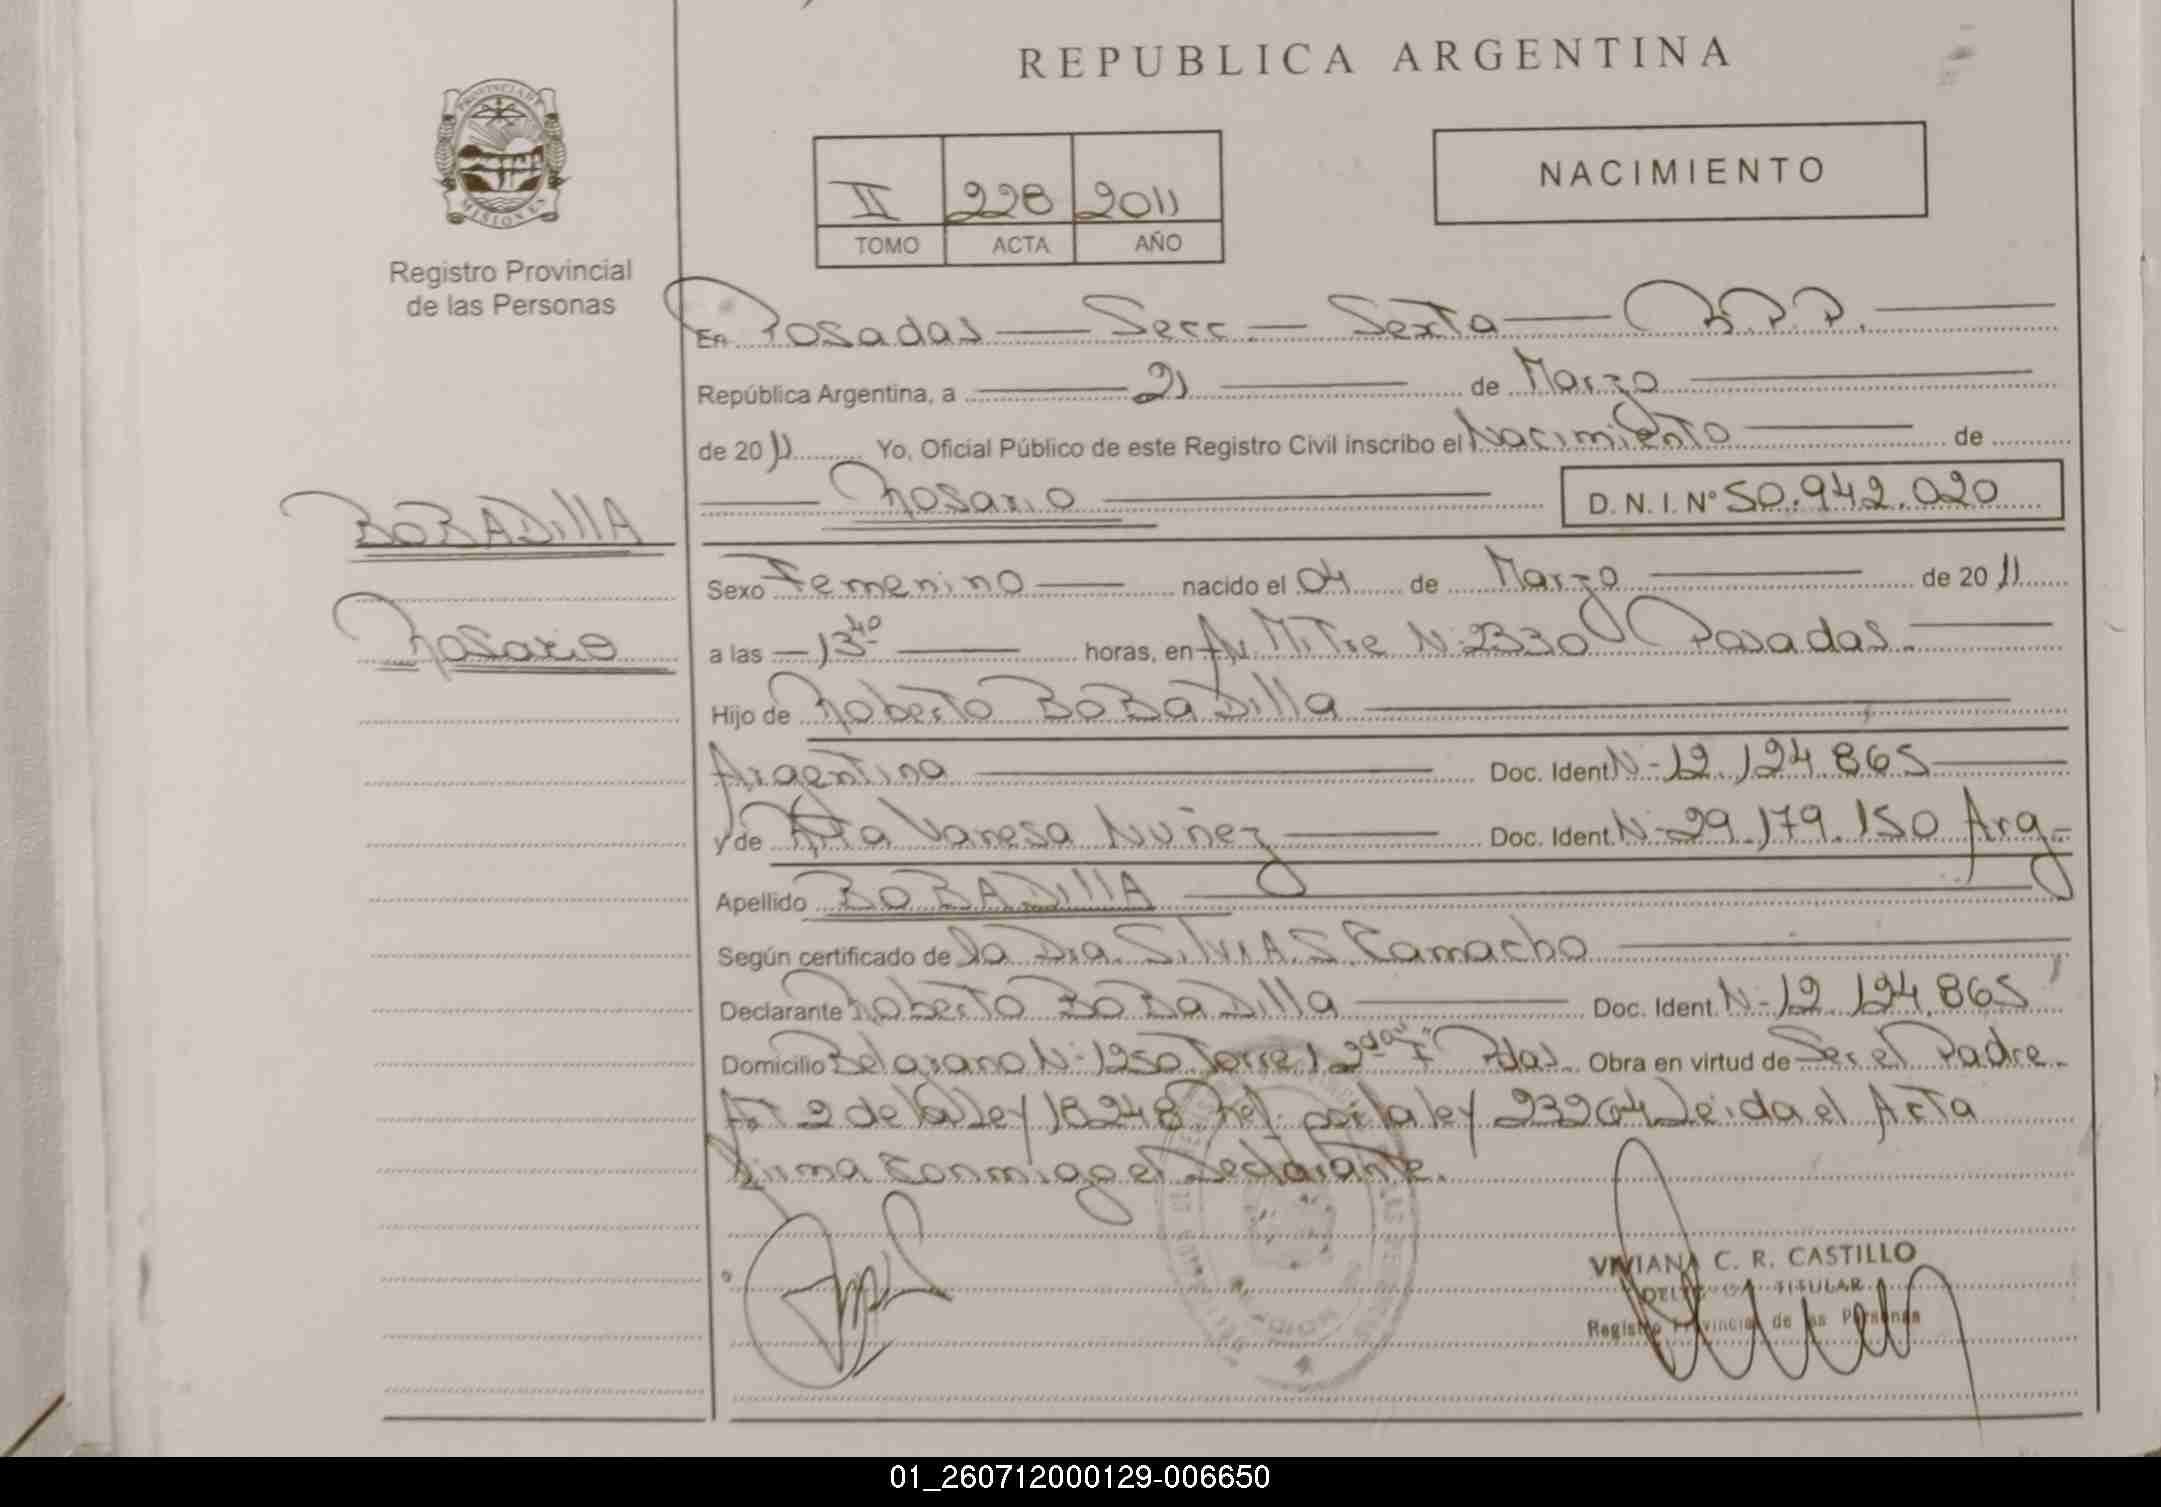 REPUBLICA ARGENTINA
PROVINCIA DE
MISIONES
Registro Provincial
de las Personas
II 228 2011
TOMO ACTA AÑO
NACIMIENTO
En Posadas — Secc. — Sexta — R.P.P.
República Argentina, a 21 de Marzo
de 2011 Yo, Oficial Público de este Registro Civil inscribo el Nacimiento de
Rosario D.N.I. N° 50.942.020
BOBADILLA
Rosario
Sexo Femenino nacido el 04 de Marzo de 2011
a las 13 40 horas, en Av. Mitre N° 2330 Posadas.
Hijo de Roberto BOBADILLA
Argentina Doc. Ident N- 12.124.865
y de Vanesa Nuñez Doc. Ident. N- 29.179.150 Arg-
Apellido BOBADILLA
Según certificado de la Dra. Silvia S. Camacho
Declarante Roberto BOBADILLA Doc. Ident. N- 12.124.865
Domicilio Belgrano N- 1250 Torre 1 2 Pdas. Obra en virtud de Ser el Padre.
Art 2 de la Ley 18248 Ref. por la ley 23264 Leida el Acta
firma conmigo el Declarante.
VIVIANA C. R. CASTILLO
DELEGADA TITULAR
Registro Provincial de las Personas
01_260712000129-006650